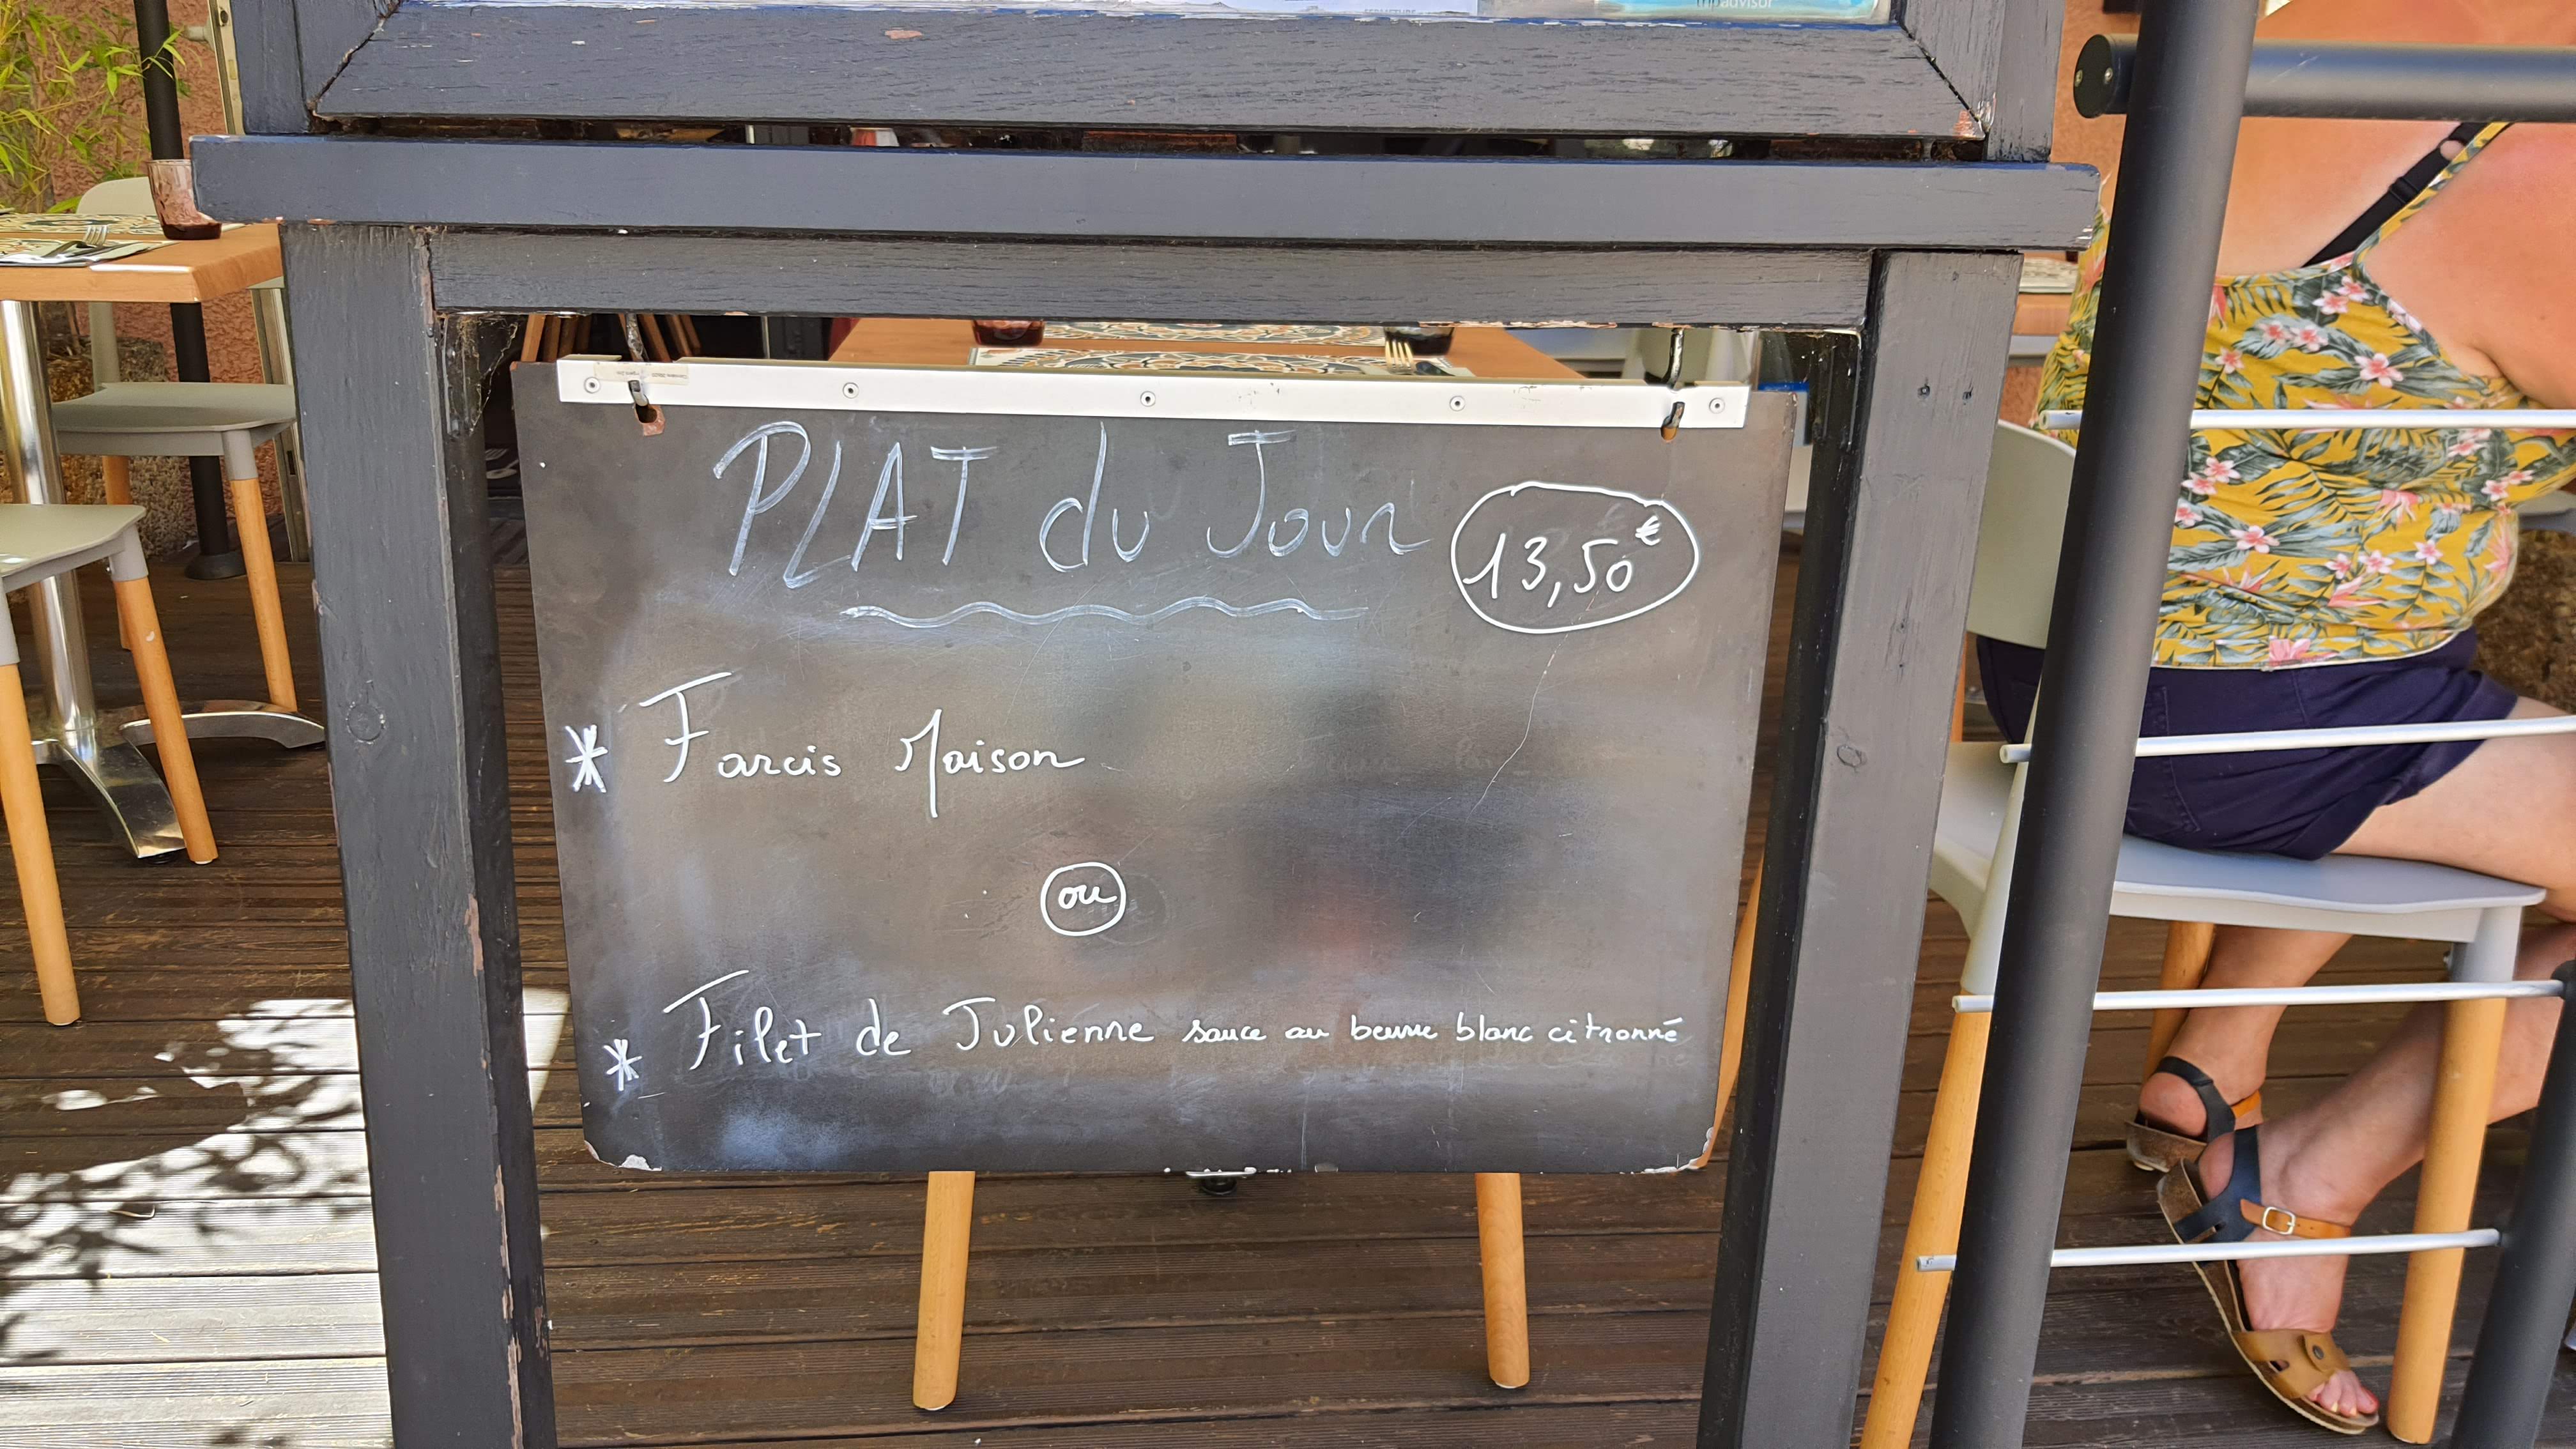 PLAT du Jour 13,50€
* Farcis Maison
ou
* Filet de Julienne sauce au beurre blanc citronné